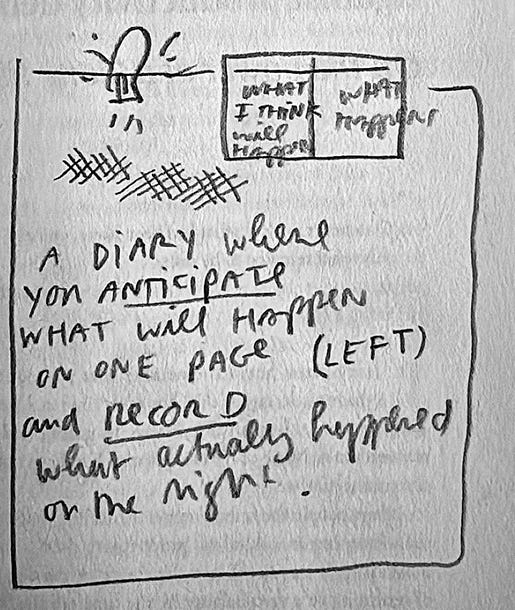 WHAT
I THINK
will
HAPPEN
WHAT
HAPPENS
A DIARY where
you ANTICIPATE
WHAT will HAPPEN
ON ONE PAGE (LEFT)
and RECORD
what actually happened
on the right.